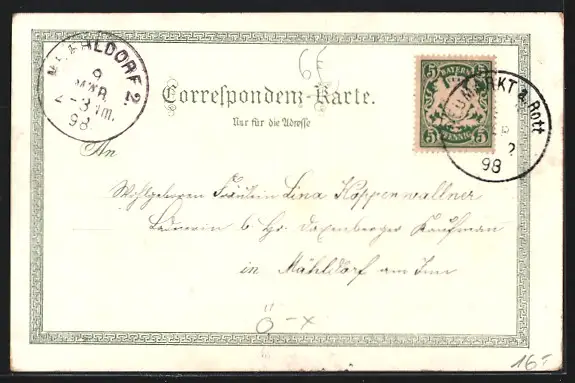 MÜHLDORF 2.
9
MÄR.
2-3 Nm.
98.
6f
Correspondenz-Karte.
Nur für die Adresse
BAYERN
5 5
5 5
PFENNIG
NEUMARKT a. Rott
98
2
An
Wohlgeboren Fräulein Lina Koppenwallner
b. Hr. Daxenberger Kaufman
in Mühldorf am Inn
16=